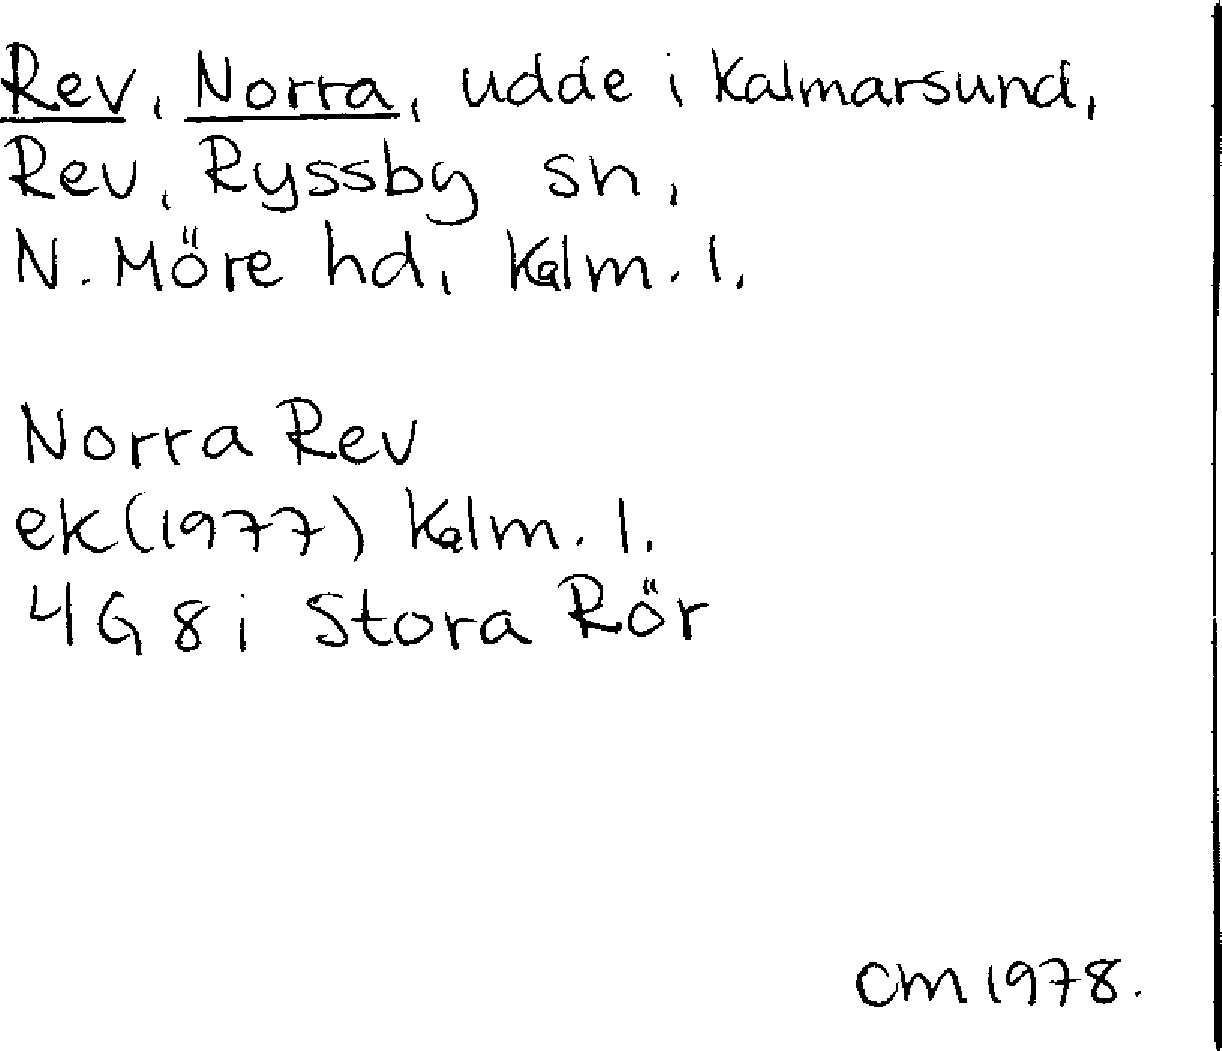 Rev, Norra, udde i Kalmarsund,
Rev, Ryssby sn,
N. Möre hd, Kalm. l.
Norra Rev
ek(1977) Kalm. l.
4G 8i Stora Rör
CM 1978.